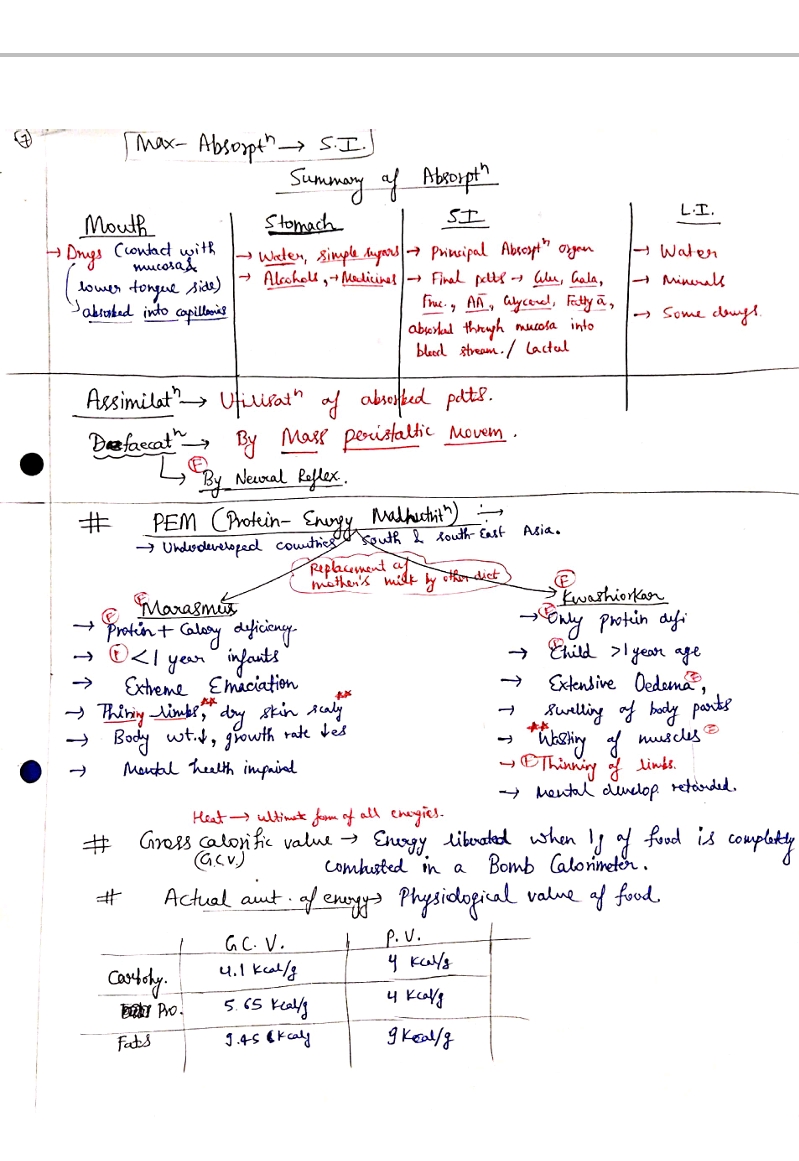 7
Max- Absorptⁿ → S.I.
Summary of Absorptⁿ
Mouth
→ Drugs (contact with
mucosa &
lower tongue side)
absorbed into capillaries
Stomach
→ Water, simple sugars
→ Alcohols, → Medicines
SI
→ Principal Absorptⁿ organ
→ Final pdts → Glu, Gala,
Fruc., AA, Glycerol, Fatty a,
absorbed through mucosa into
blood stream. / Lacteal
L.I.
→ Water
→ Minerals
→ Some drugs.
Assimilatⁿ → Utilisatⁿ of absorbed pdts.
Defaecatⁿ → By Mass peristaltic Movem.
→ (F) By Neural Reflex.
# PEM (Protein- Energy Malnutritⁿ) : →
→ Underdeveloped countries South & South-East Asia.
Replacement of
mother's milk by other diet
(F) Marasmus
→ (F) Protein + Calory deficiency
→ (F) <1 year infants
→ Extreme Emaciation
→ Thining limbs,** dry skin scaly**
→ Body wt.↓, growth rate ↓es
→ Mental health impaired
(F)
Kwashiorkar
→ (F) Only protein defi
→ (F) Child >1 year age
→ Extensive Oedema (F),
→ Swelling of body parts
→ **Wasting of muscles (F)
→ (F) Thinning of limbs.
→ Mental develop retarded.
Heat → ultimate form of all energies.
# Gross calorific value → Energy liberated when 1g of food is completly
(G.C.V.) combusted in a Bomb Calorimeter.
# Actual amt. of energy → Physiological value of food.
G.C.V. P.V.
Carbohy. 4.1 Kcal/g 4 Kcal/g
Pro. 5.65 Kcal/g 4 Kcal/g
Fats 9.45 Kcal/g 9 Kcal/g